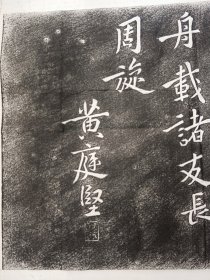 舟載諸友長
周旋
黄庭堅